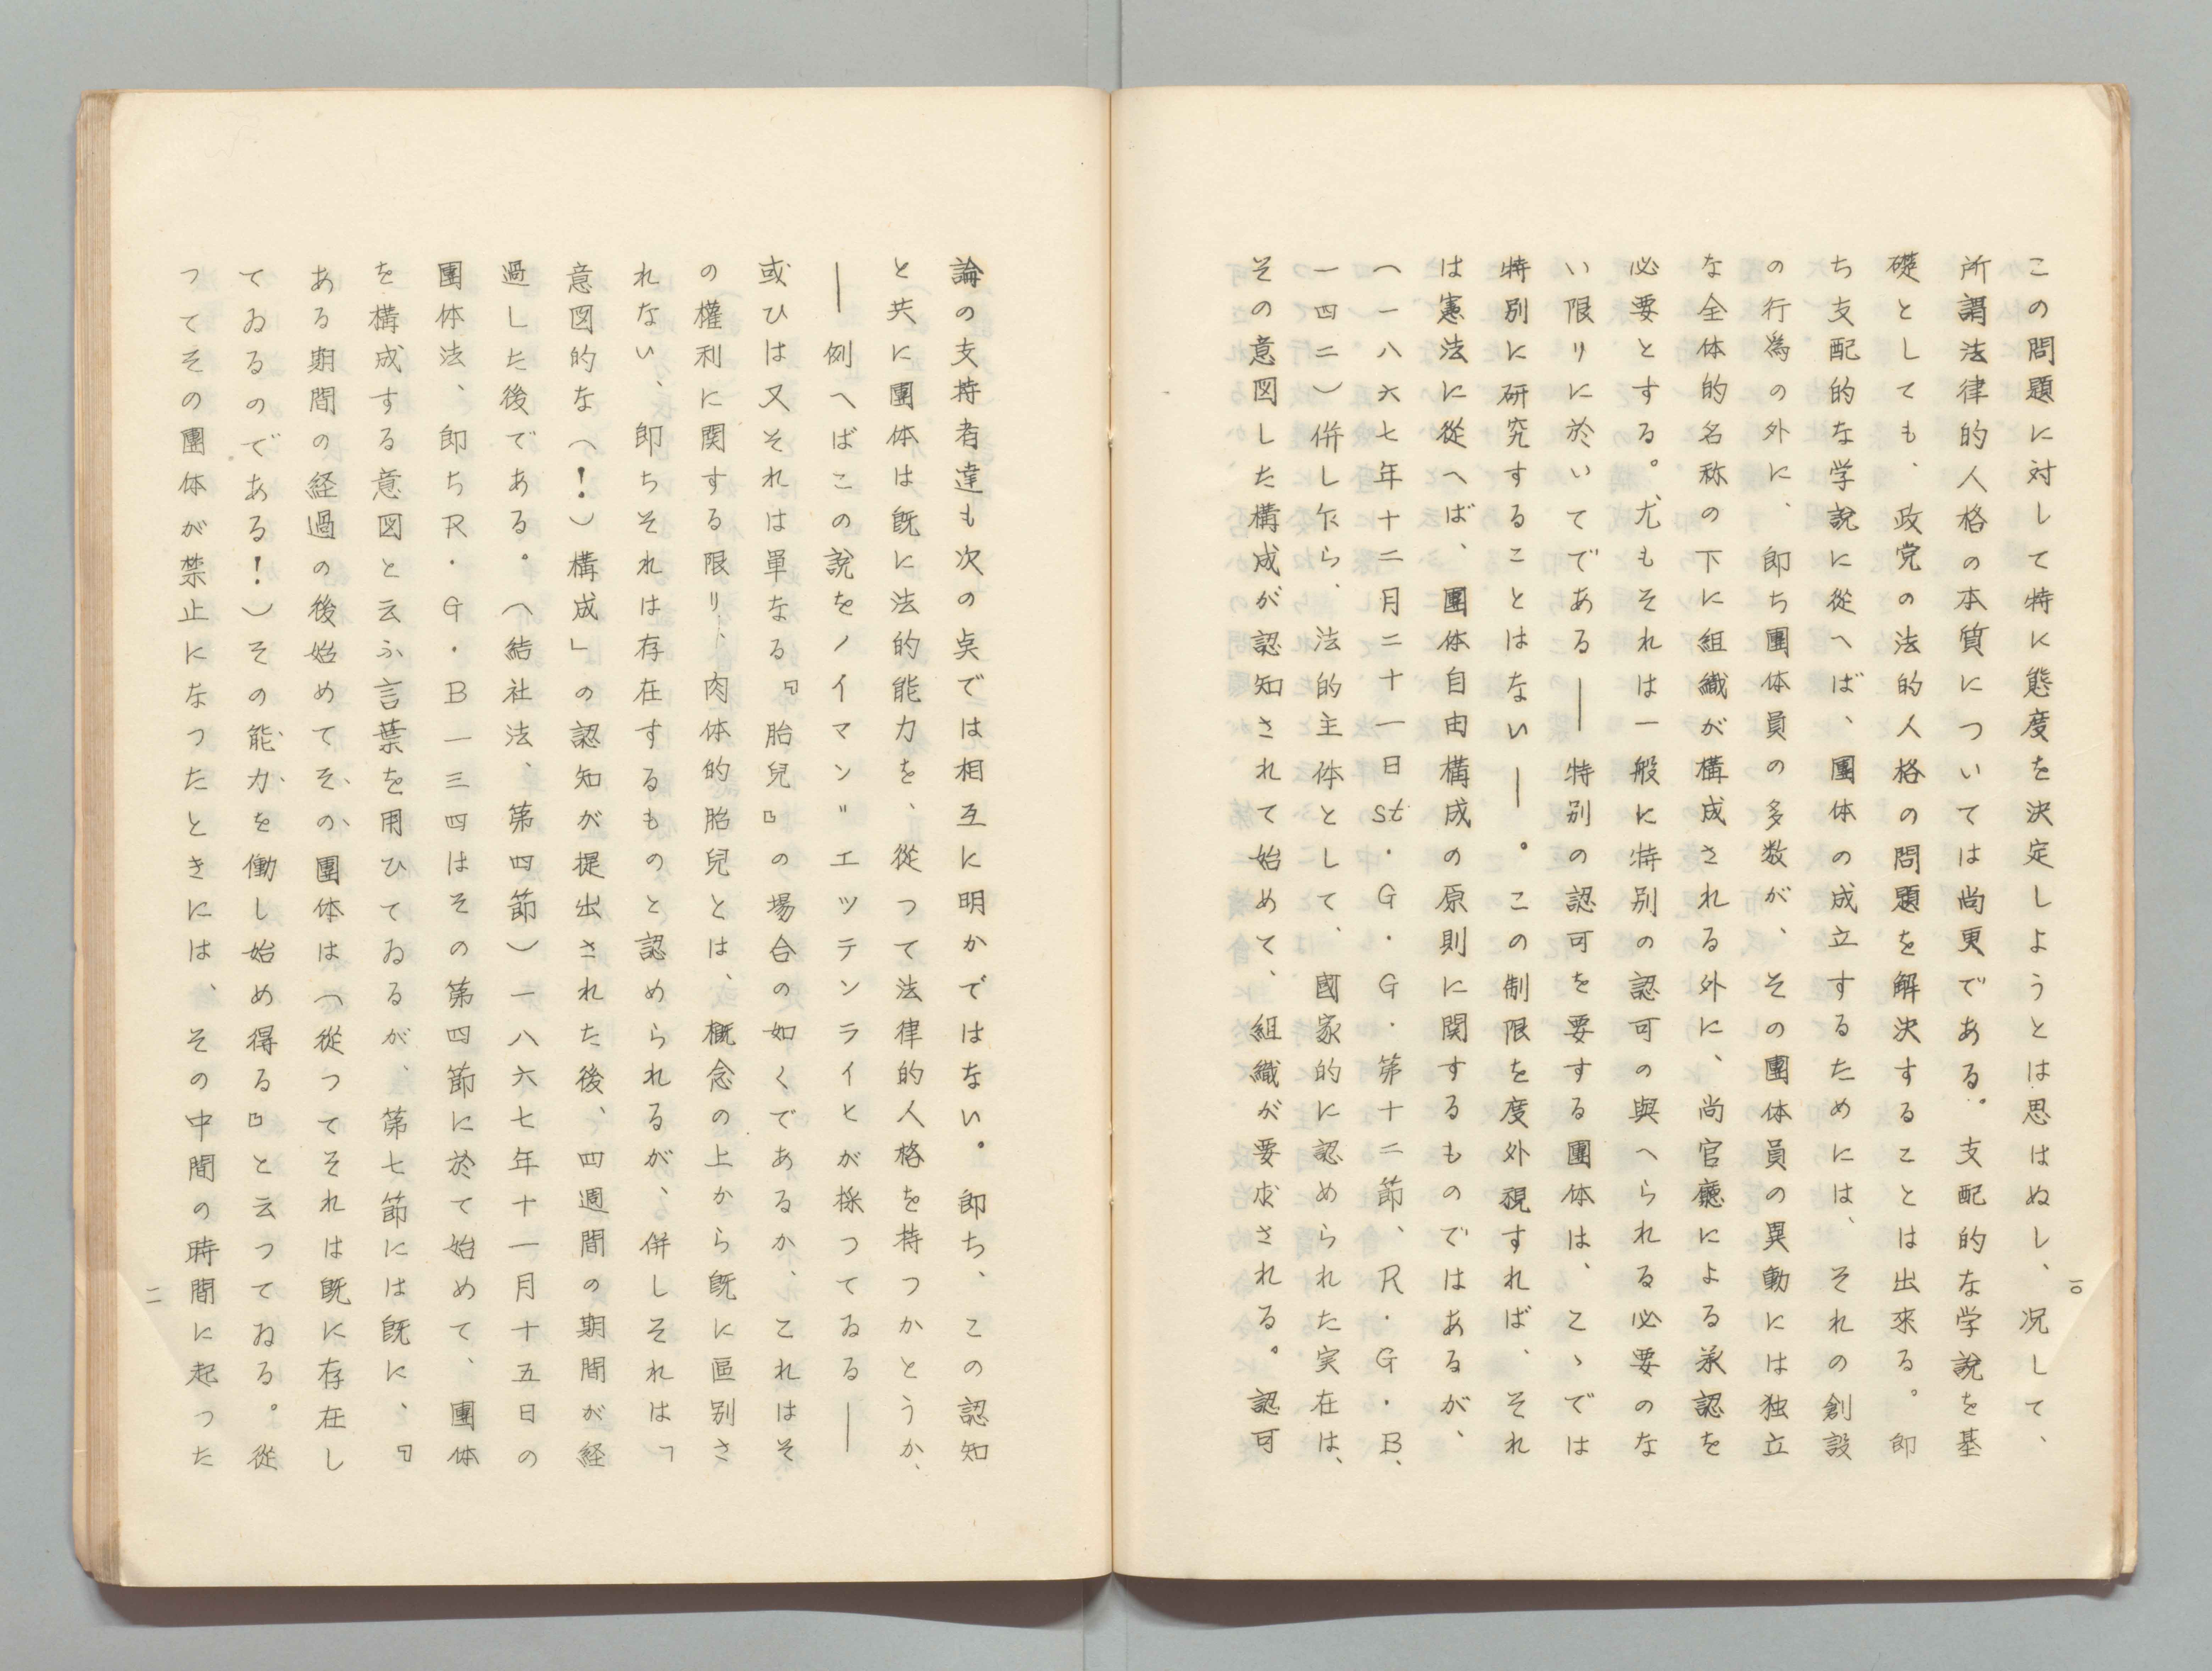 この問題に対して特に態度を決定しようとは思はぬし、況して、
所謂法律的人格の本質については尚更である。支配的な学説を基
礎としても、政党の法的人格の問題を解決することは出來る。即
ち支配的な学説に從へば、團体の成立するためには、それの創設
の行為の外に、即ち團体員の多数が、その團体員の異動には独立
な全体的名称の下に組織が構成される外に、尚官廳による承認を
必要とする。尤もそれは一般に特別の認可の與へられる必要のな
い限りに於いてである――特別の認可を要する團体は、こゝでは
特別に研究することはない――。この制限を度外視すれば、それ
は憲法に從へば、團体自由構成の原則に関するものではあるが、
（一八六七年十二月二十一日St・G・G・第十二節、R・G・B、
一四二）併し乍ら、法的主体として、國家的に認められた実在は、
その意図した構成が認知されて始めて、組織が要求される。認可
一〇
論の支持者達も次の点では相互に明かではない。即ち、この認知
と共に團体は既に法的能力を、從つて法律的人格を持つかとうか、
――例へばこの説をノイマン〃エッテンライとが採つてゐる――
或ひは又それは單なる『胎兒』の場合の如くであるか、これはそ
の權利に関する限り、肉体的胎兒とは、概念の上から既に區別さ
れない、即ちそれは存在するものと認められるが、併しそれは「
意図的な（！）構成」の認知が提出された後、四週間の期間が経
過した後である。（結社法、第四節）一八六七年十一月十五日の
團体法、即ちR・G・B一三四はその第四節に於て始めて、團体
を構成する意図と云ふ言葉を用ひてゐるが、第七節には既に、『
ある期間の経過の後始めてその團体は（從つてそれは既に存在し
てゐるのである！）その能力を働し始め得る』と云つてゐる。從
つてその團体が禁止になつたときには、その中間の時間に起つた
一一